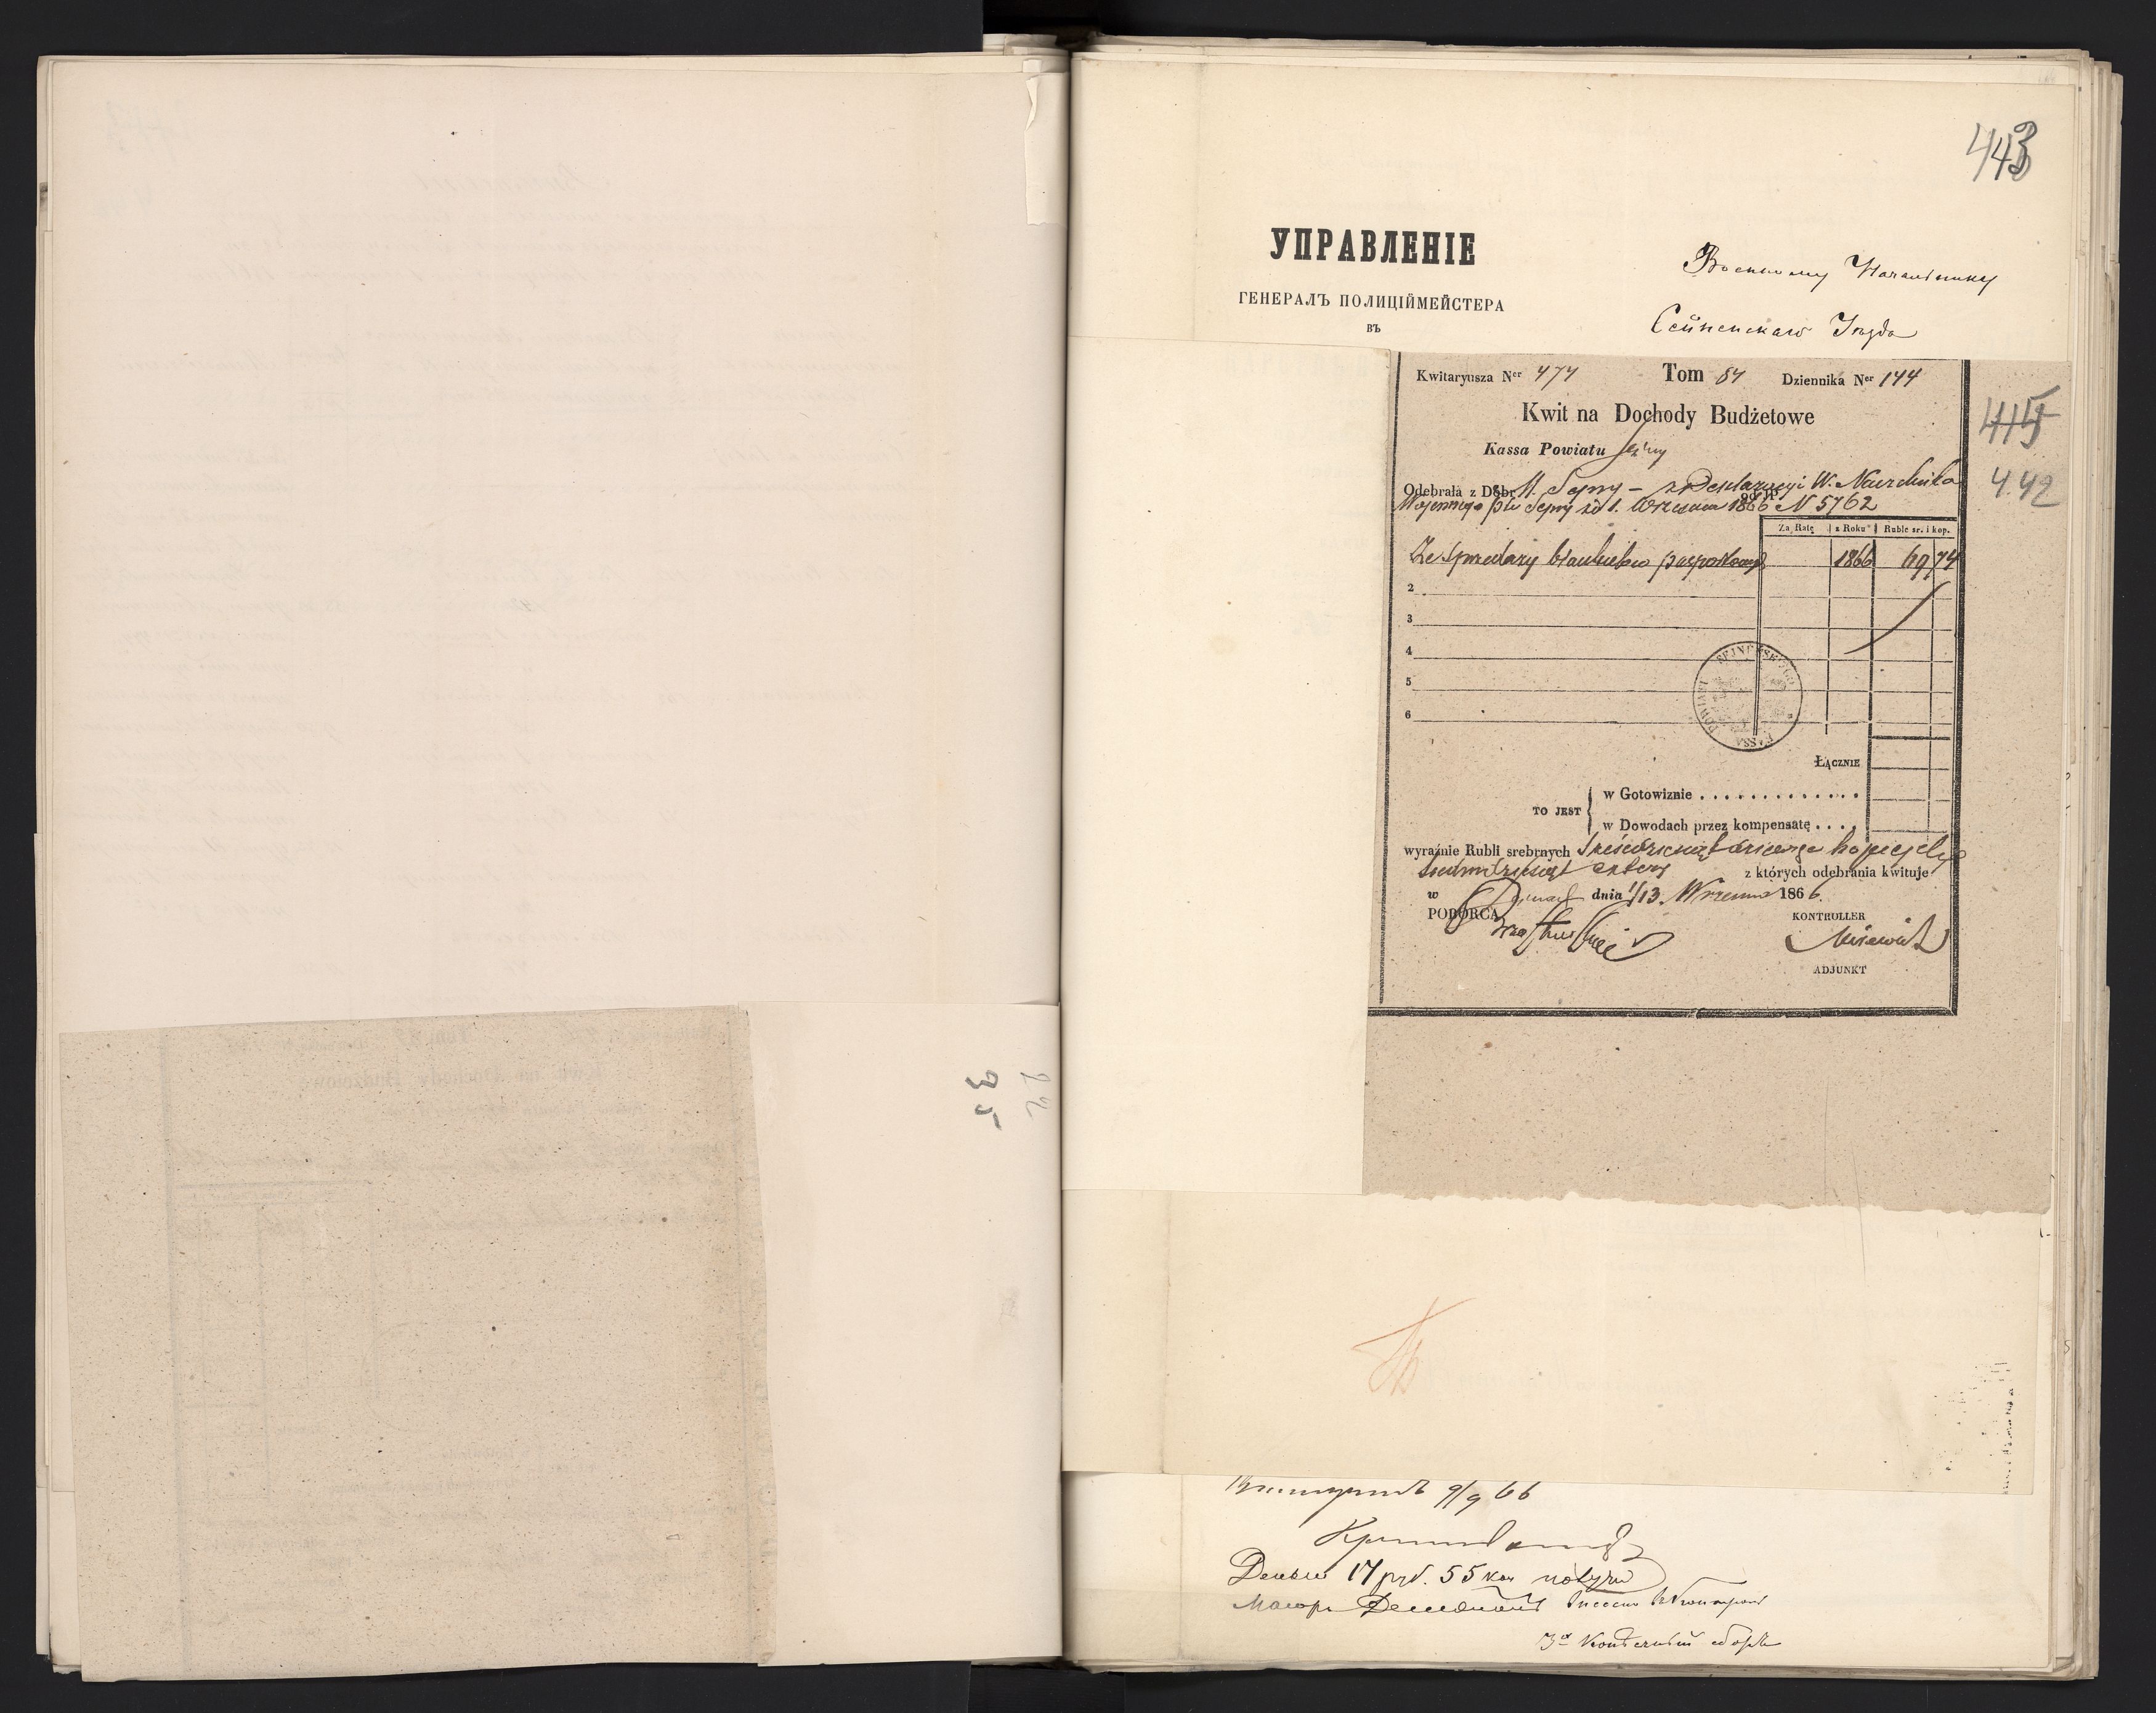 443
УПРАВЛЕНІЕ
ГЕНЕРАЛЪ ПОЛИЦІЙМЕЙСТЕРА
ВЪ
Военному Начальнику
Сейненскаго Уѣзда
Kwitaryusza Ner 474 Tom 84 Dziennika Ner 144
Kwit na Dochody Budżetowe
Kassa Powiatu Sejny
445
442
Odebrała z Dóbr M. Sejny – z W. Naczelnika
Wojennego Sejny 1. Września 1866 N 5762
Za Ratę z Roku Ruble sr. i kop.
Ze sprzedaży blankietów paszportowych 1866 69 74
2
3
4
5
6
KASSA POWIATU SEJNEŃSKIEGO
ŁĄCZNIE
TO JEST
w Gotowiznie . . . . . . . . . . . . .
w Dowodach przez kompensatę . . . .
wyraźnie Rubli srebrnych Sześćdziesiąt dziewięć kopiejek
siedmdziesiąt cztery z których odebrania kwituje
w dnia 1/13 Września 1866.
POBORCA KONTROLLER
ADJUNKT
9/9 66
Деньги 17 руб. 55 коп получи
Маіоръ
22
35